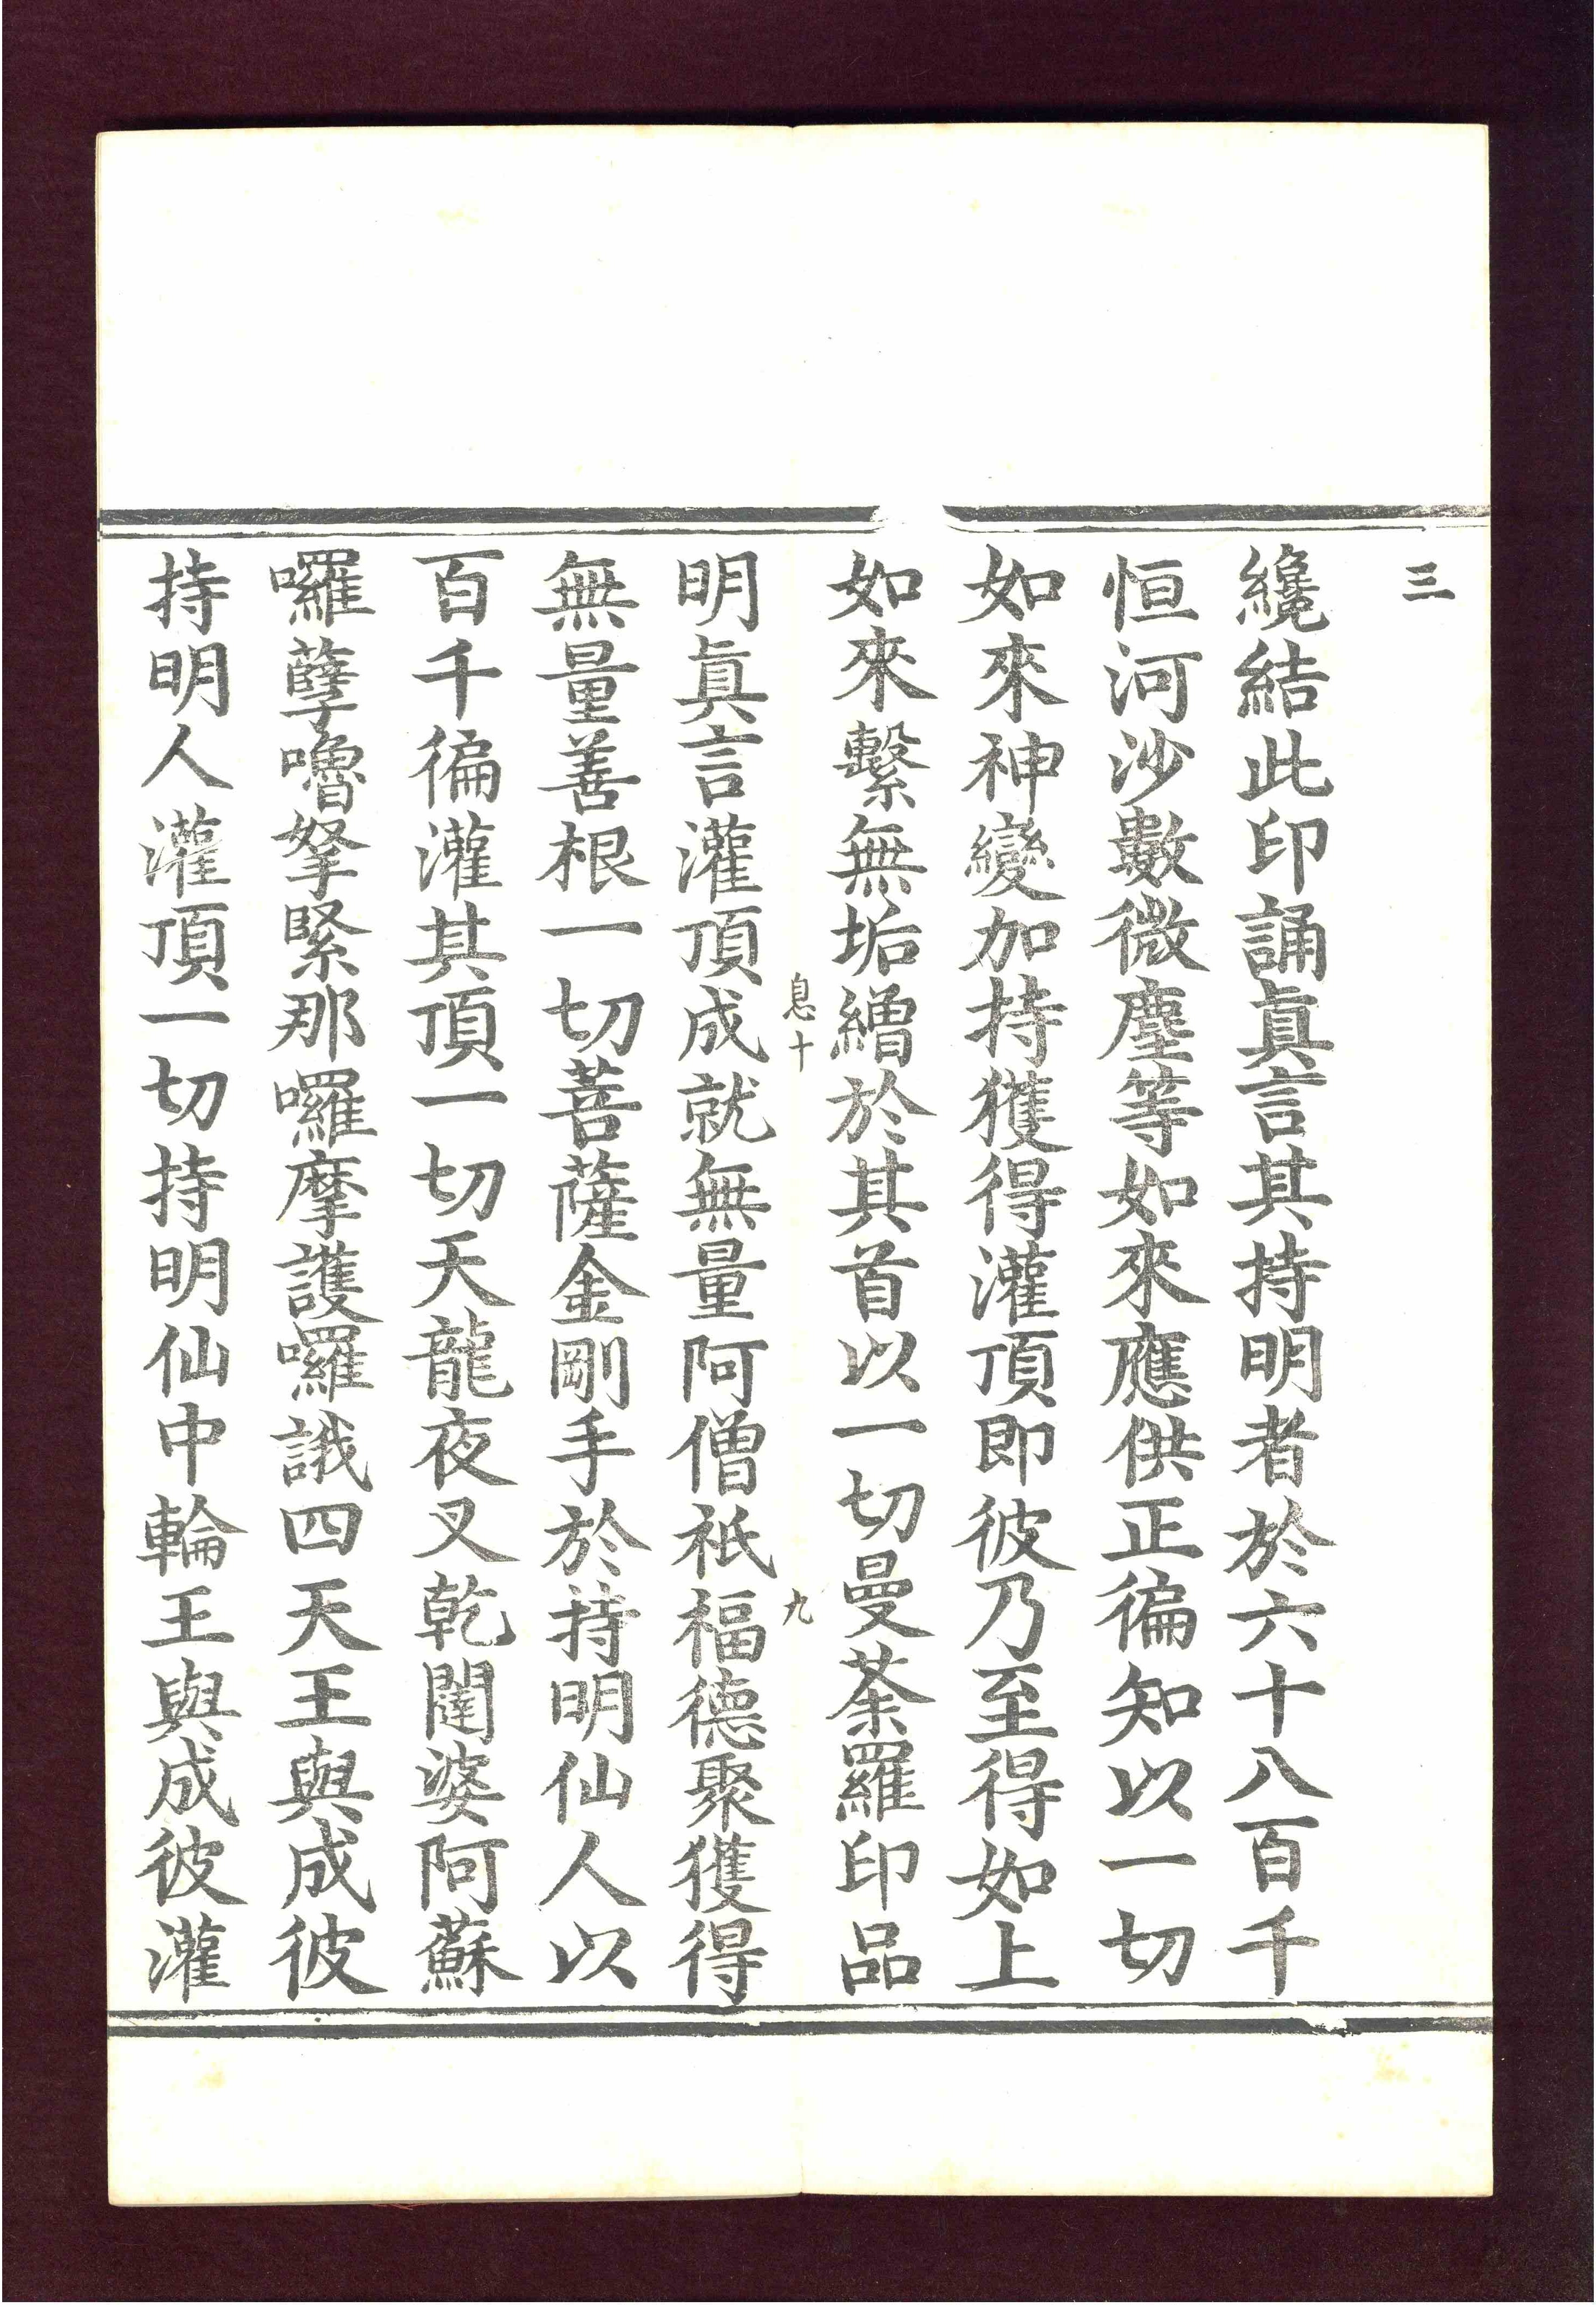 三
纔結此印誦眞言其持明者於六十八百千
恒河沙數微塵等如來應供正徧知以一切
如來神變加持獲得灌頂即彼乃至得如上
如來繫無垢繒於其首以一切曼荼羅印品
息十 九
明眞言灌頂成就無量阿僧祇福德聚獲得
無量善根一切菩薩金剛手於持明仙人以
百千徧灌其頂一切天龍夜叉乾闥婆阿蘇
囉孽嚕拏緊那囉摩護囉誐四天王與成彼
持明人灌頂一切持明仙中輪王與成彼灌